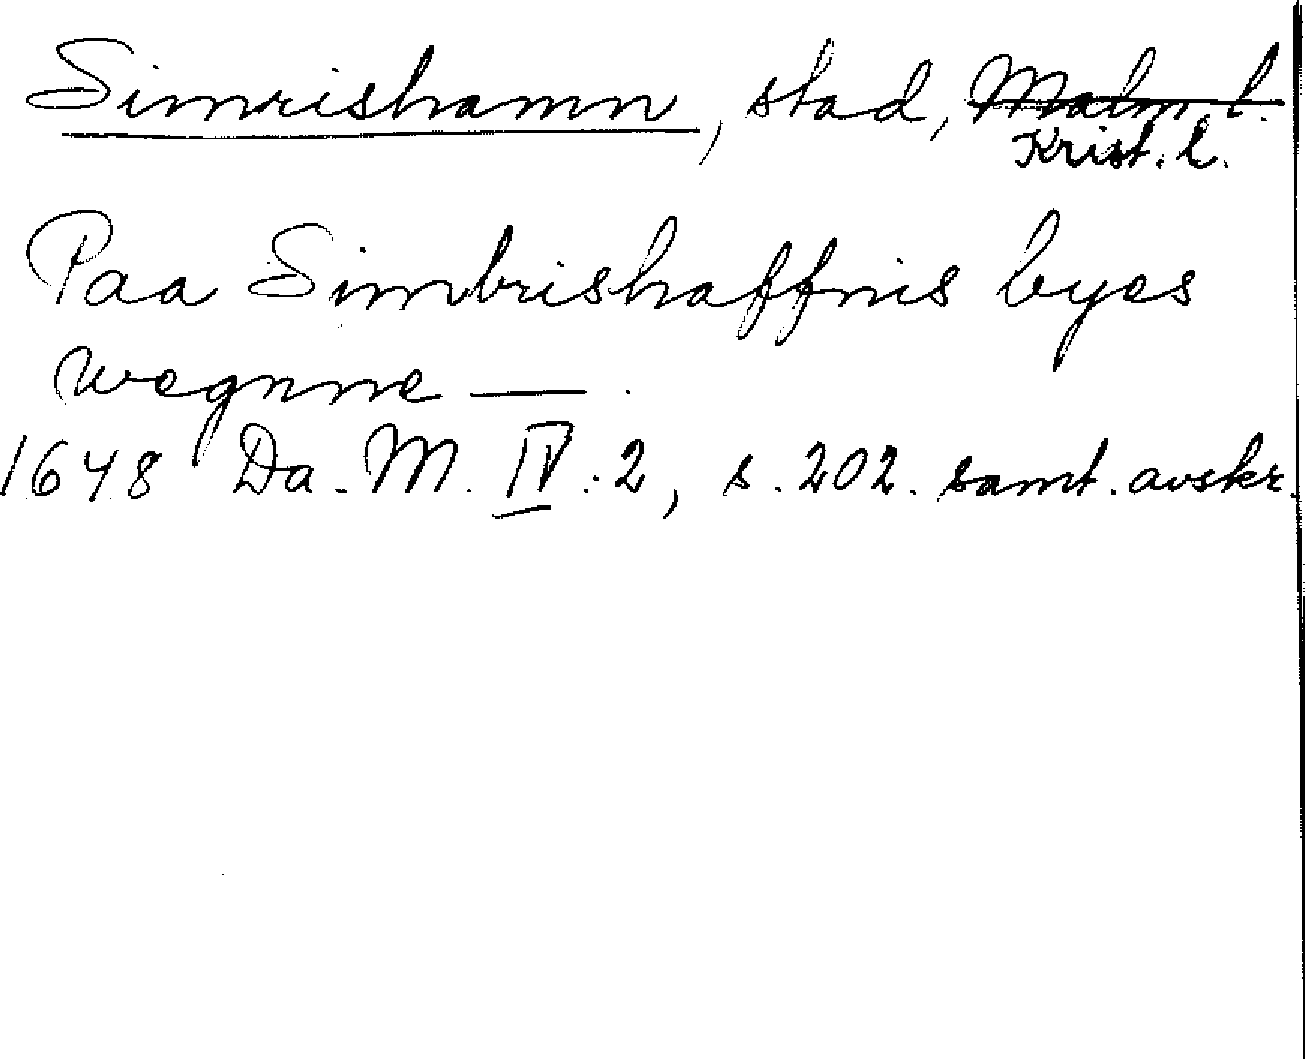 Simrishamn, stad, Malm. l.
Krist. l.
Paa Simbrishaffnis byes
wegnne —.
1648 Da. M. IV. 2, s. 202. samt. avskr.